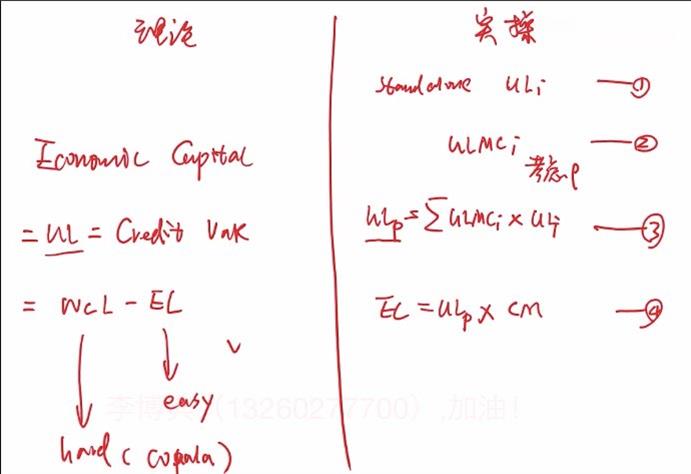 理论
Economic Capital
= UL = Credit VaR
= WCL - EL
easy
hard (copula)
实操
standalone ULi ①
ULMCi ②
考虑ρ
ULp = ∑ULMCi × ULi ③
EC = ULp × CM ④
李博 (13260277700) ,加油!